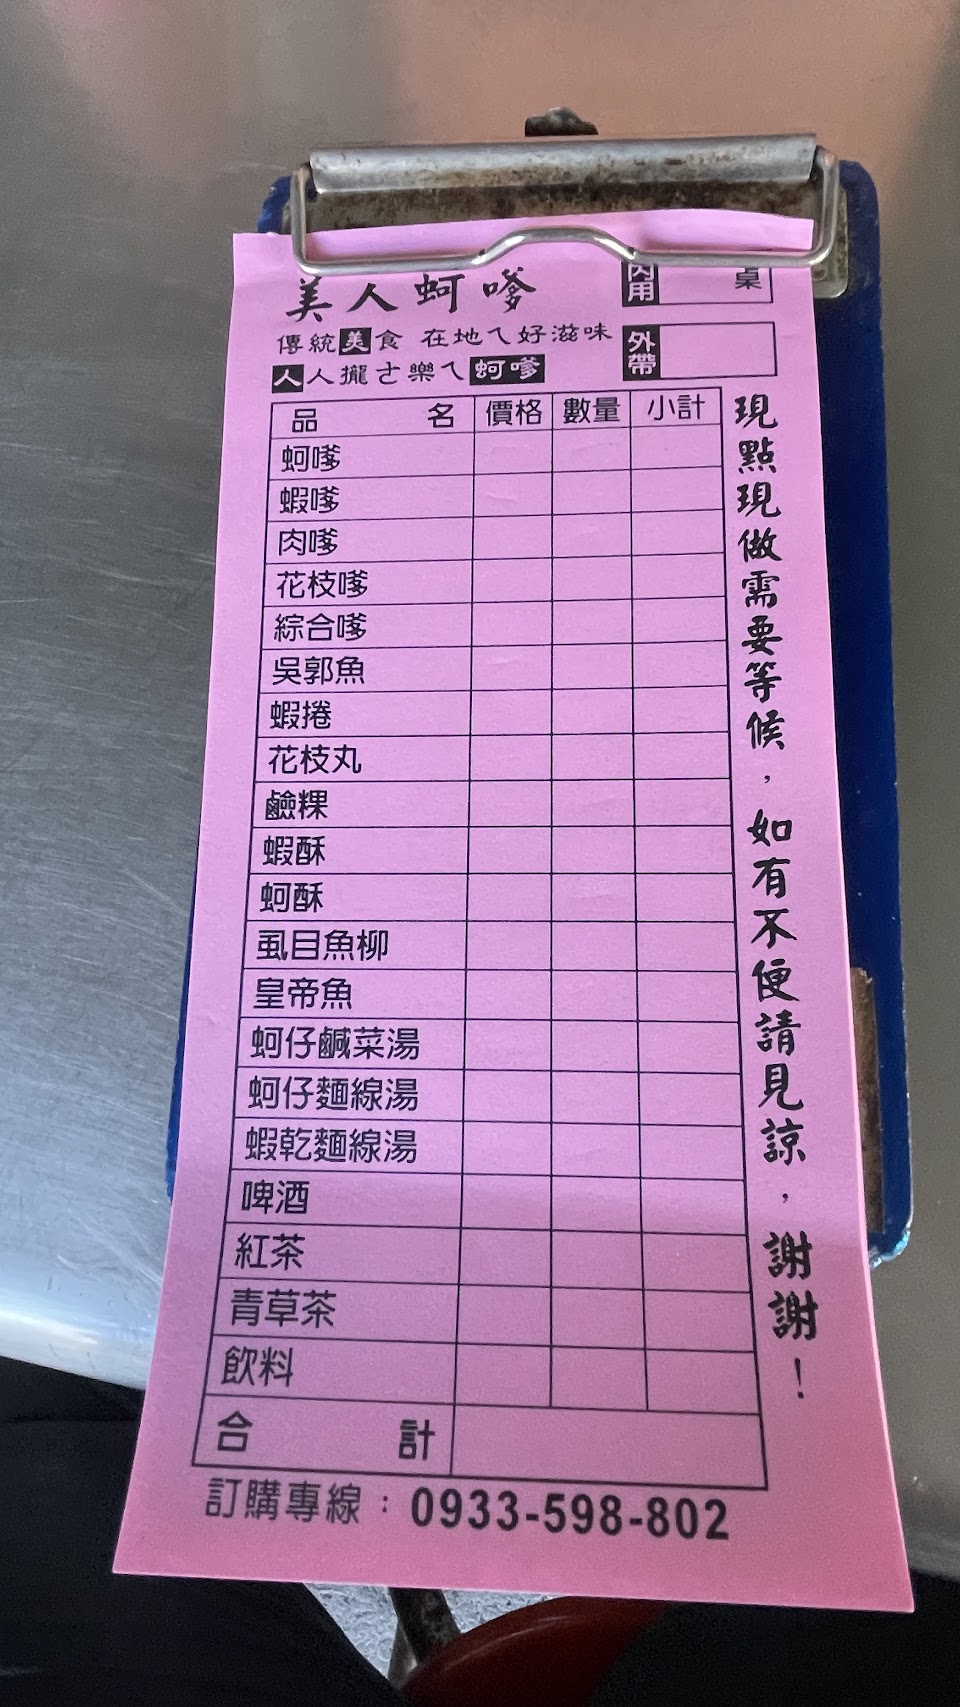 美人蚵嗲
內用 桌
傳統美食 在地ㄟ好滋味
外帶
人人攏ㄜ樂ㄟ蚵嗲
品名 價格 數量 小計
蚵嗲
蝦嗲
肉嗲
花枝嗲
綜合嗲
吳郭魚
蝦捲
花枝丸
鹼粿
蝦酥
蚵酥
虱目魚柳
皇帝魚
蚵仔鹹菜湯
蚵仔麵線湯
蝦乾麵線湯
啤酒
紅茶
青草茶
飲料
合計
現點現做需要等候，如有不便請見諒，謝謝！
訂購專線：0933-598-802